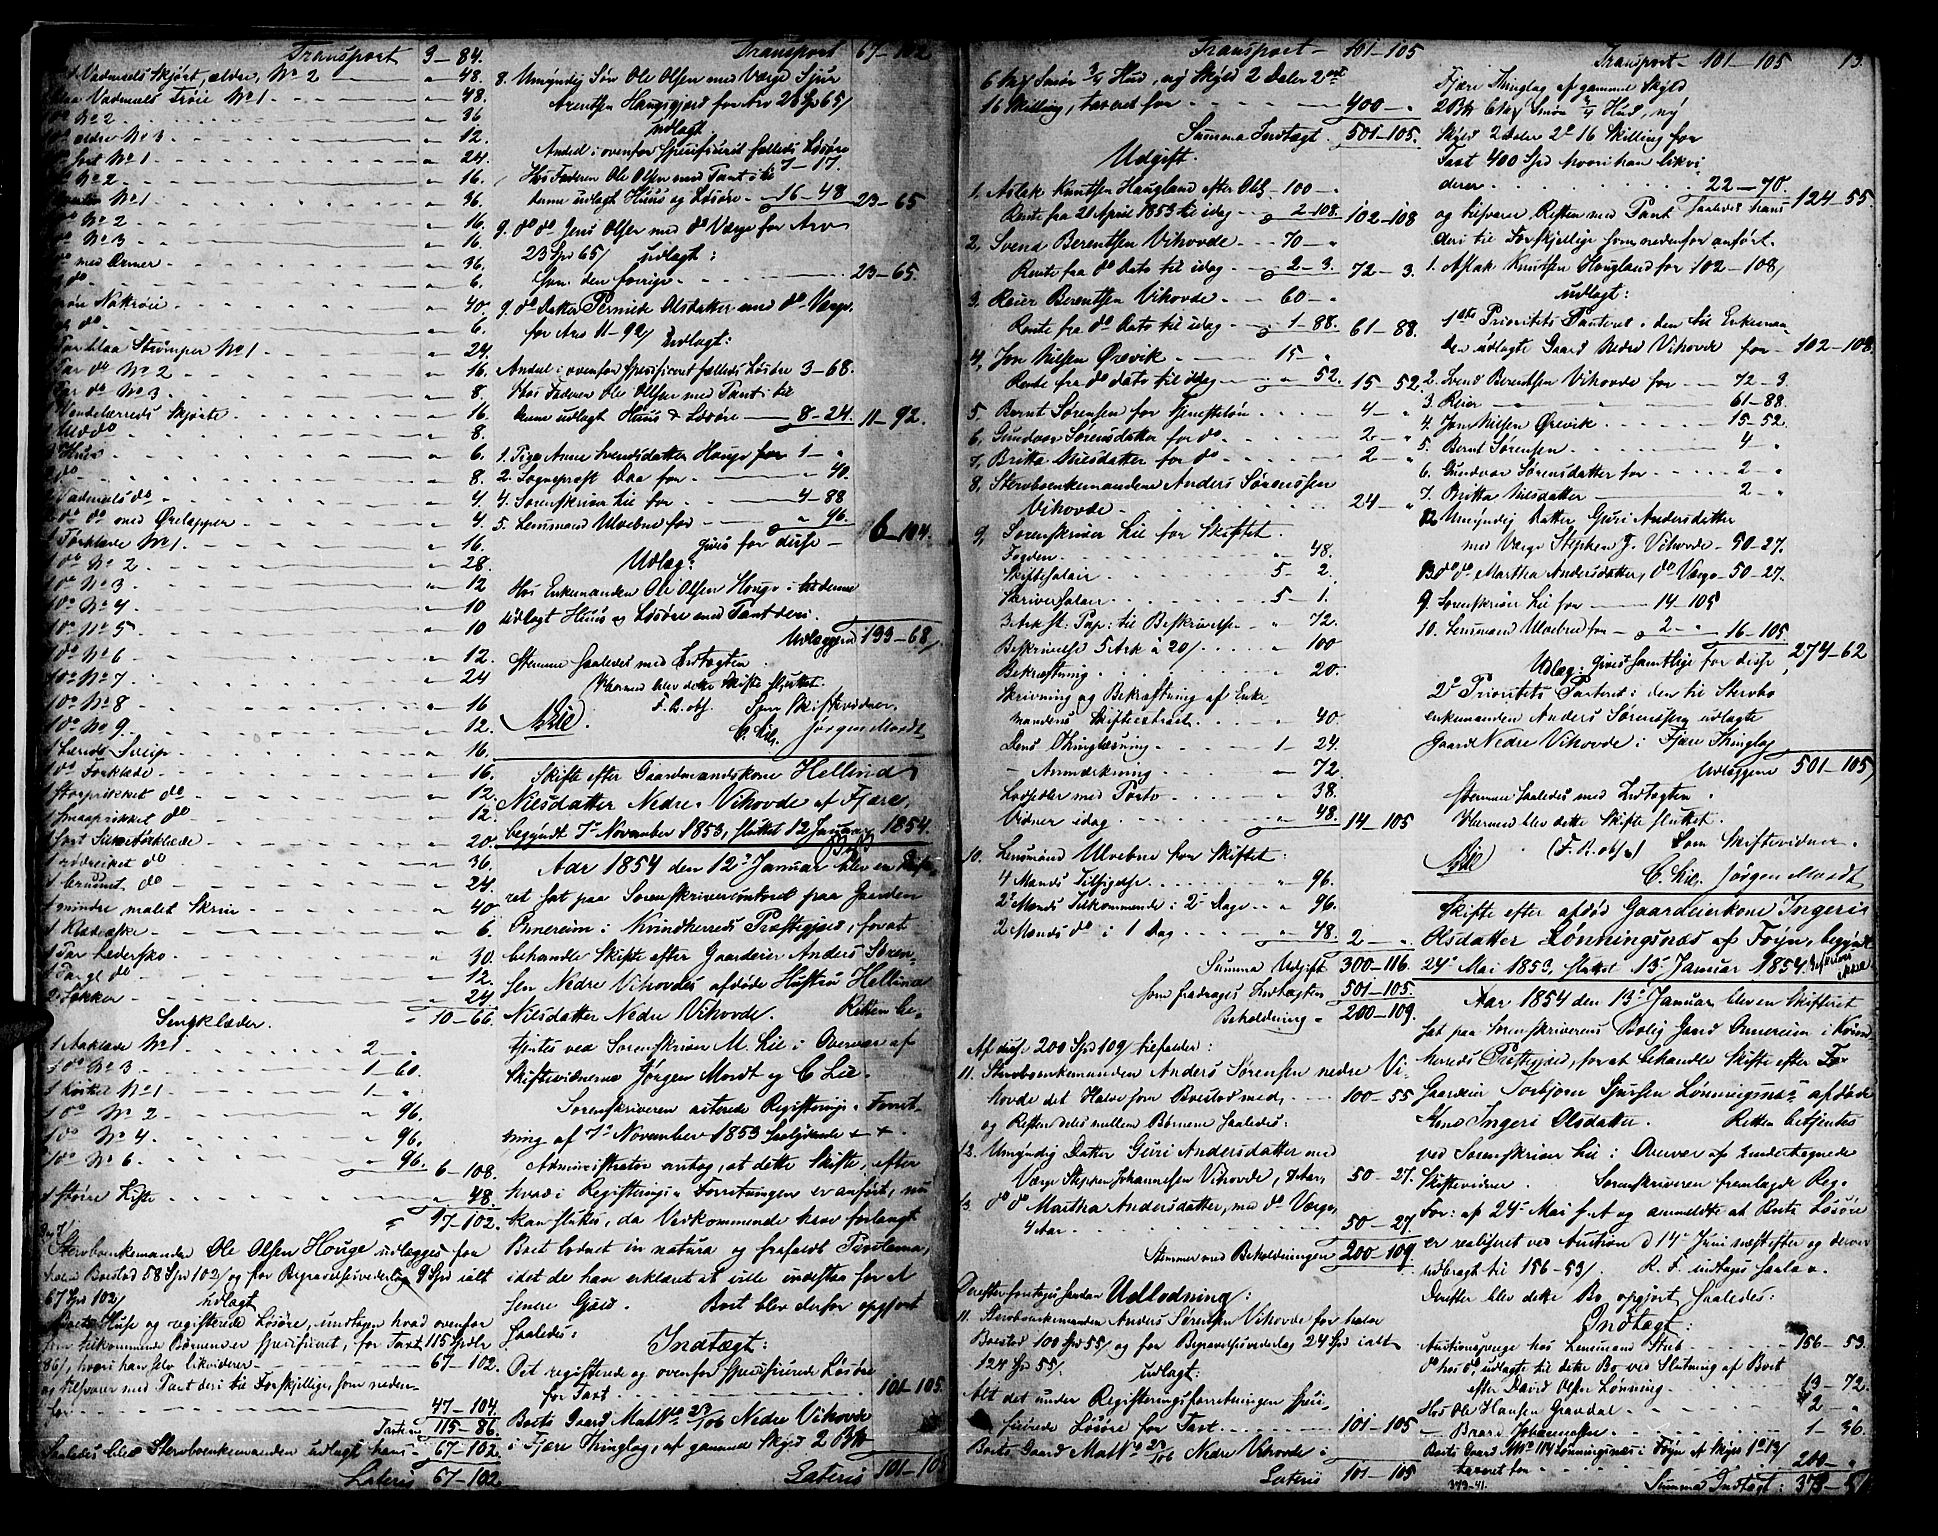 Transport 3-84.
Vadmels Skjørt, ældre, No 2 - 48.
Vadmels Trøie No 1 - 48.
do No 2 - 36
do ældre No 3 - 12.
No 1 - 24.
No 2 - 16.
No 1 - 36.
do No 2 - 16.
do No 3 - 16.
do med Ærmer - 36.
do - 6.
Nattrøie - 40.
do - 6.
Par blaa Strømper No 1 - 24.
Par do No 2 - 16.
Par do No 3 - 8.
Skjorte - 16.
do - 8.
Huer - 6.
do - 8.
Vadmels do - 4.
do do med Ørelapper - 4.
1 Forklæde No 1 - 16.
1 do No 2 - 28.
1 do No 3 - 12
1 do No 4 - 10
1 do No 5 - 10
1 do No 6 - 12.
1 do No 7 - 24
1 do No 8 - 16
1 do No 9 - 12.
1 Lærreds - 16.
1 do Forklæde - 16.
1 Storprikket do - 12.
1 Smaaprikket do - 12.
1 sort Silketørklæde - 20.
1 rødternet do - 36
1 do - 24.
1 mindre malet Skrin - 40
1 Klædeæske - 6.
1 Par Lædersko - 30.
1 Par gl do - 12.
2 Sokker - 24
" 10-66.
Sengklæder.
1 Aaklæde No 1 2-"
1 do No 3 1-60.
1 No 1 1-"
1 do No 2 " 96.
1 do No 4 " 96.
1 do No 6 " 96.
6-108.
1 større Kiste " 48.
" 17-102.
Stervboenkemanden Ole Olsen Houge udlægges for
halve Boeslod 58 Spd 102/ og for Begravelsesvederlag 9 Spd ialt
67 Spd 102/ udlagt
Boets Huse og registerede Løsøre, undtagen hvad ovenfor
som tilkommende Børnene er specificeret, for Taxt 115 Spdlr
86/, hvori han selv likviderer 67-102.
og tilsvarer med Pant deri til Forskjellige, som neden-
for 47-104.
Taxten 115-86.
Saaledes blev Stervboenkemanden udlagt hans 67-102.
Lateris 67-102.

Transport 67-102
8. Umyndig Søn Ole Olsen med Værge Sjur
Arentsen Haugsgjerd for Arv 23 Spd 65/
udlagt.
Andel i ovenfor specificeret fælleds Løsøre 7-17.
Hos Faderen Ole Olsen med Pant i til
denne udlagt Huus og Løsøre 16-48 23-65
9. do do Jens Olsen med do Værge for Arv
23 Spd 65/ udlagt:
Som den forrige 23-65.
9. do Datter Pernide Olsdatter med do Værge
for Arv 11-92/ udlagt:
Andel i ovenfor specificeret fælleds Løsøre 3-68.
Hos Faderen Ole Olsen med Pant i til
denne udlagt Huus & Løsøre 8-24. 11-92.
1. Pige Anne Svendsdatter Houge for 1-"
2. Sogneprest Daa for - 40.
4. Sorenskriver Lie for 4-88
5. Lensmand Ulvebne for " 96.
gives for disse 6-104.
Udlæg:
Hos Enkemanden Ole Olsen Houge i hos denne
udlagt Huus og Løsøre med Pant deri.
Udlæggene 133-68/
stemme saaledes med Indtægten.
Hermed blev dette Skifte sluttet.
F. B. obs. Som Skiftevidner,
MLie. C. Lie. Jørgen Mordt
Skifte efter Gaardmandskone Hellind
Nielsdatter Nedre Vikovde af Fjære,
begyndt 7de November 1853, sluttet 12 Januar 1854.
Aar 1854 den 12te Januar blev en Skifte-
ret sat paa Sorenskrivercontoret paa Gaarden
Omvreim i Kvindherreds Præstegjeld, for at
behandle Skifte efter Gaardeier Anders Søren-
sen Nedre Vikovdes afdøde Hustru Hellind
Nilsdatter Nedre Vikovde. Retten be-
tjentes ved Sorenskriver M. Lie i Overvær af
Skiftevidnerne Jørgen Mordt og C Lie.
Sorenskriveren acterede Registerings-Forret-
ning af 7de November 1853 saalydende + +.
Administrator antog, at dette Skifte, efter
hvad i Registerings-Forretningen er anført, nu
kan sluttes, da Vedkommende have forlangt
Boet lodnet in natura og frafaldt Proclama,
idet de have erklæret at ville indestaa for al
senere Gjæld. Boet blev derfor opgjort
saaledes: Indtægt:
Det registerede og ovenfor specificerede Løsøre
for Taxt 101-105.
Boets Gaard Mat No 23/106 Nedre Vikovde
i Fjære Thinglag, af gammel Skyld 2 Bpd
Lateris 101-105

Transport 101-105
6 Mk Smør 3/4 Hud, ny Skyld 2 Daler 2 ort
16 Skilling, taxeret for 400-"
Summa Indtægt 501-105.
Udgift.
1. Aslak Knutsen Haugland efter Obl. 100-"
Rente fra 21 April 1853 til idag 2-108. 102-108
2. Svend Berentsen Vikovde 70-"
Rente fra do Dato til idag 2-3. 72-3.
3. Reier Berentsen Vikovde 60-"
Rente fra do Dato til idag 1-88. 61-88.
4. Jon Nilsen Ørevik 15-"
Rente fra do dato til idag " 52. 15-52.
5. Bernt Sørensen for Tjenesteløn 4-"
6. Gundvor Sørensdatter for do 2-"
7. Britta Nilsdatter for do 2-"
8. Stervboenkemanden Anders Sørenssen
Vikovde 24-"
9. Sorenskriver Lie for Skiftet.
Fogden " 48.
Skiftesalair 5-2.
Skriversalair 5-1.
3 Ark st: Pap: til Beskrivelse " 72.
Beskrivelse 5 Ark à 20/ " 100
Bekræftning " 20.
Skrivning og Bekræftning af Enke-
mandens Skifteextract " 40
Dens Thinglæsning 1-24.
- Anmærkning " 72.
Lodsedler med Porto " 38.
Vidner idag " 48. 14-105
10. Lensmand Ulvebne for Skiftet:
4 Mænds Tilsigelse " 96.
2de Mænds Tilkommende i 2de Dage " 96.
2 Mænds do i 1 Dag " 48. 2-".
Summa Udgift 300-116.
som fradrages Indtægten 501-105.
Beholdning 200-109.
Af disse 200 Spd 109/ tilfalder:
11. Stervboenkemanden Anders Sørensen nedre Vi-
kovde det Halve som Boeslod med 100-55
og Resten deles mellem Børnene saaledes:
12. Umyndig Datter Guri Andersdatter med
Værge Stephen Johannessen Vikovde, 7 Aar, 50-27.
13. do do Martha Andersdatter, med do Værge,
4 Aar 50-27
Stemmer med Beholdningen 200-109.
Derefter foretages saadan Udlodning:
11. Stervboenkemanden Anders Sørensen Vikovde for halve
Boeslod 100 Spd 55/ og for Begravelsesvederlag 24 Spd ialt
124 Spd 55/. udlagt:
Alt det under Registeringsforretningen speci-
ficerede Løsøre for Taxt 101-105
Boets Gaard Mat No 23/106 Nedre Vikovde i
Lateris 101-105

Transport 101-105 13.
Fjære Thinglag af gammel Skyld
2 Bpd 6 Mk Smør 3/4 Hud, ny
Skyld 2 Daler 2 ort 16 Skilling for
Taxt 400 Spd hvori han likvi-
derer 22-70. 124-55.
og tilsvarer Resten med Pant saaledes hans
deri til Forskjellige som nedenfor anført.
1. Aslak Knutsen Hougland for 102-108/
udlagt:
1ste Prioritets Panteret i den til Enkeman-
den udlagte Gaard Nedre Vikovde for 102-108.
2. Svend Berentsen Vikovde for 72-3.
3. Reier 61-88.
4. Jon Nilsen Ørevik 15-52.
5. Bernt Sørensen 4-"
6. Gundvor Sørensdatter for 2-"
7. Britta Nilsdatter 2-"
12. Umyndig Datter Guri Andersdatter
med Værge Stephen J. Vikovde 50-27.
13. do do Martha Andersdatter, do Værge 50-27.
9. Sorenskriver Lie for 14-105
10. Lensmand Ulvebne for 2-" 16-105.
Udlæg: gives samtlige for disse 274-62
2de Prioritets Panteret i den til Stervbo-
enkemanden Anders Sørenssen udlagte
Gaard Nedre Vikovde i Fjære Thinglag
Udlæggene 501-105/
stemme saaledes med Indtægten.
Hermed blev dette Skifte sluttet.
(F. B. obs.) Som Skiftevidner.
MLie C. Lie. Jørgen Mordt
Skifte efter afdød Gaardeierkone Ingeris
Olsdatter Lønningsnæs af Føyn, begyndt
24de Mai 1853, sluttet 13de Januar 1854.
Aar 1854 den 13de Januar blev en Skifteret
sat paa Sorenskriverens Bolig Gaard Omvreim i Kvind-
herreds Præstegjeld, for at behandle Skifte efter
Gaardeier Torbjørn Sjursen Lønningsnæs afdøde
Kone Ingeri Olsdatter. Retten betjentes
ved Sorenskriver Lie i Overvær af Undertegnede
Skiftevidner. Sorenskriveren fremlagde Reg.
For: af 24de Mai f. A og anmeldte at Boets Løsøre
er realiseret ved Auction d 14de Juni næstefter og derved
udbragt til 156-53/. R. F. indtages saalav.
Derefter blev dette Bo opgjort saaledes:
Indtægt:
Auctionspenge hos Lensmand Steb 156-53.
do hos do, udlagt til dette Bo ved Slutning af Boet
efter David Olsen Lønning 13-72.
Hos Ole Hansen Gravdal 2-"
- Baar Johannessen 1-36.
Boets Gaard M No 114 Lønningsnæs i Føyn af Skyld 1 d 13/
taxeret for 200-"
373-41. Summa Indtægt: 373-51